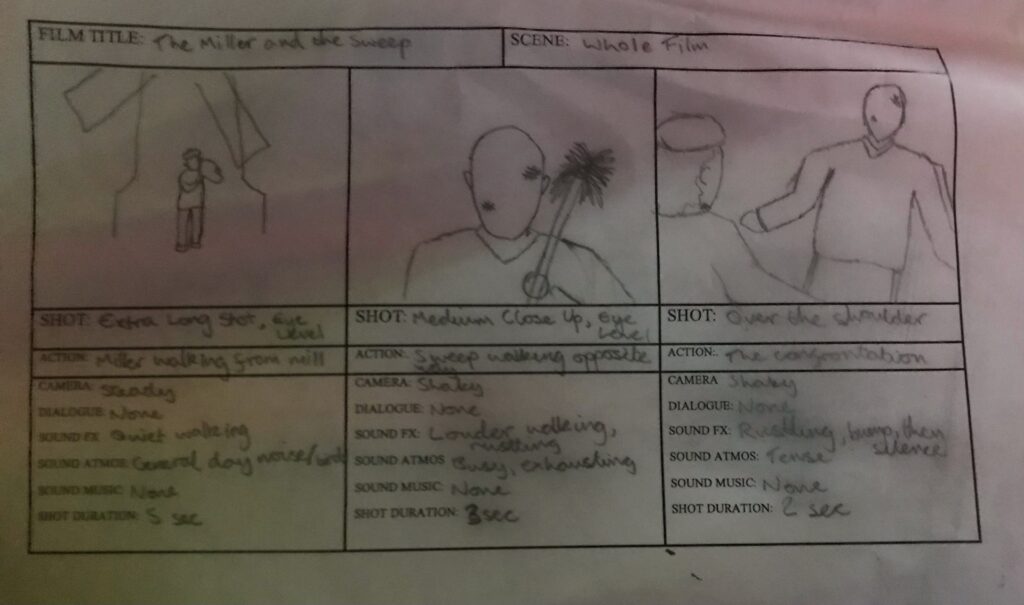 FILM TITLE: The Miller and the Sweep
SCENE: Whole Film
SHOT: Extra Long Shot, Eye
Level
ACTION: Miller walking from mill
CAMERA: Steady
DIALOGUE: None
SOUND FX: Quiet walking
SOUND ATMOS: General day noise/birds
SOUND MUSIC: None
SHOT DURATION: 5 sec
SHOT: Medium Close Up, Eye
Level
ACTION: Sweep walking opposite
way
CAMERA: Shaky
DIALOGUE: None
SOUND FX: Louder walking,
rustling
SOUND ATMOS: Busy, exhausting
SOUND MUSIC: None
SHOT DURATION: 3 sec
SHOT: Over the shoulder
ACTION: The confrontation
CAMERA Shaky
DIALOGUE: None
SOUND FX: Rustling, bump, then
silence
SOUND ATMOS: Tense
SOUND MUSIC: None
SHOT DURATION: 2 sec